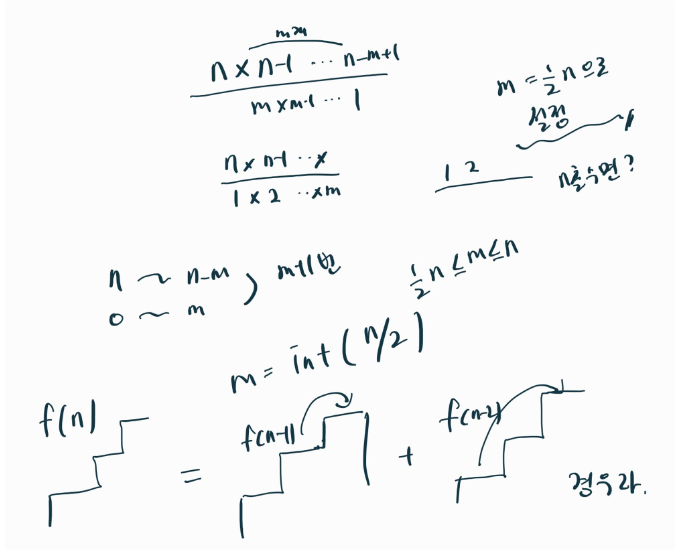 m개
n × n-1 ... n-m+1
m × m-1 ... 1
m = 1/2 n 으로
설정
n × n-1 ..×
1 × 2 ..×m
1 2
n홀수면?
n ~ n-m
0 ~ m
, m+1번
1/2 n ≤ m ≤ n
m = int (n/2)
f(n)
=
f(n-1)
+
f(n-2)
경우라.